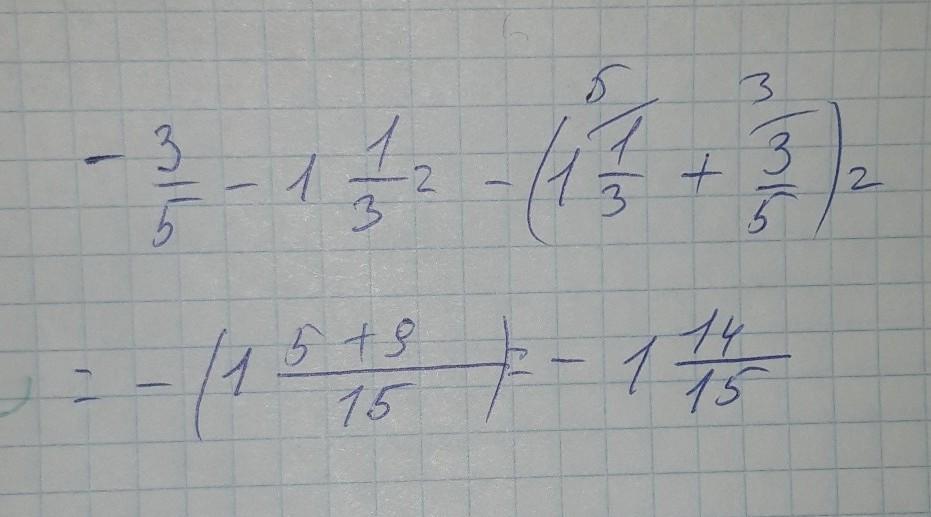 - 3/5 - 1 1/3 = - (1 1/3 ⁵ + 3/5 ³) =
= - (1 (5+9)/15) = - 1 14/15